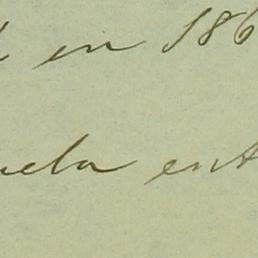 en 186
uela ent